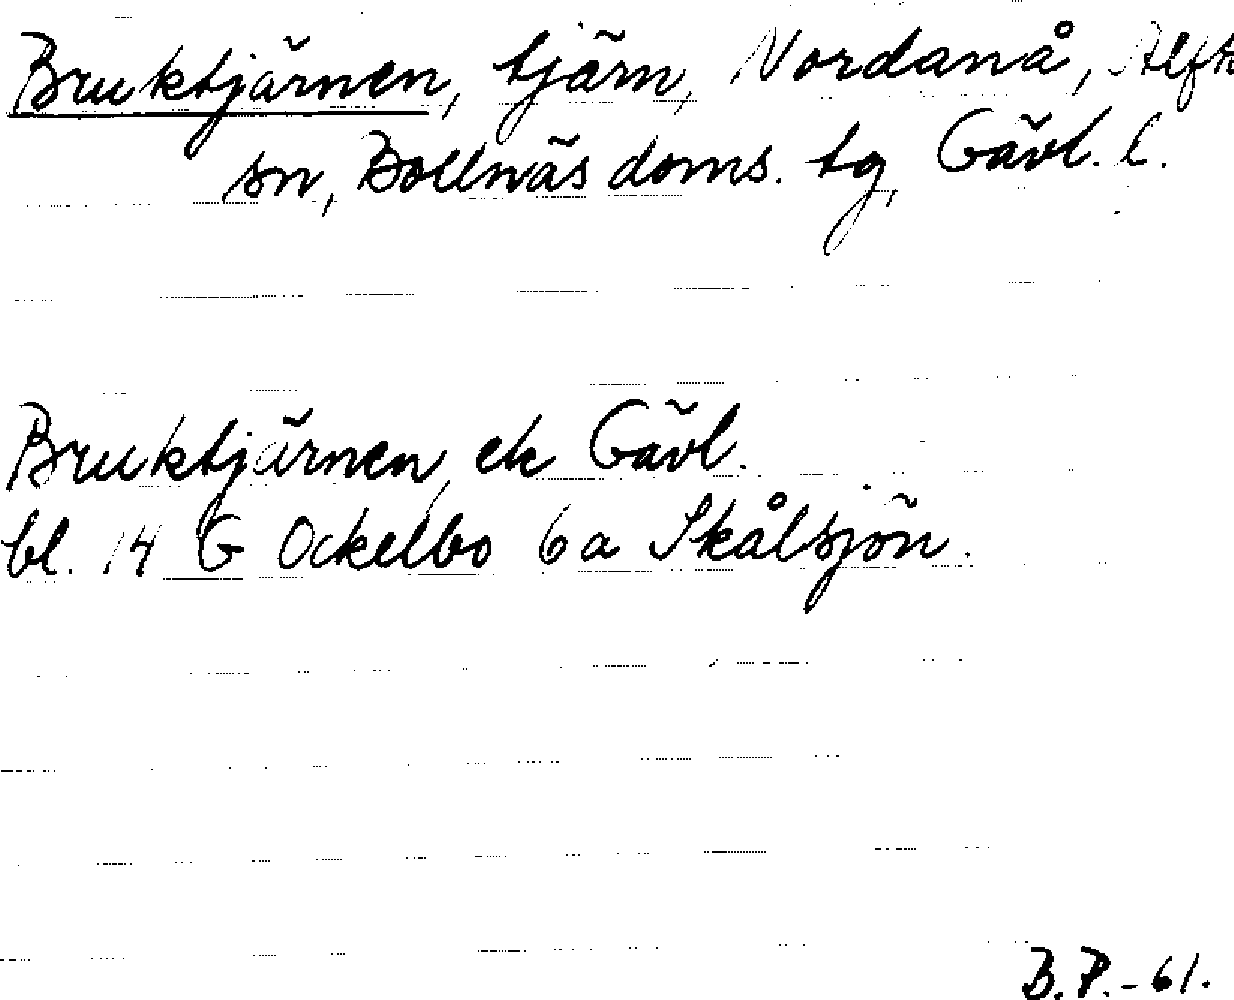 Bruktjärnen, tjärn, Nordanå, Alft
sn, Bollnäs doms. tg, Gävl. l.
Bruktjärnen, ek Gävl.
bl. 14 G Ockelbo 6a Skålsjön.
B.P.-61.